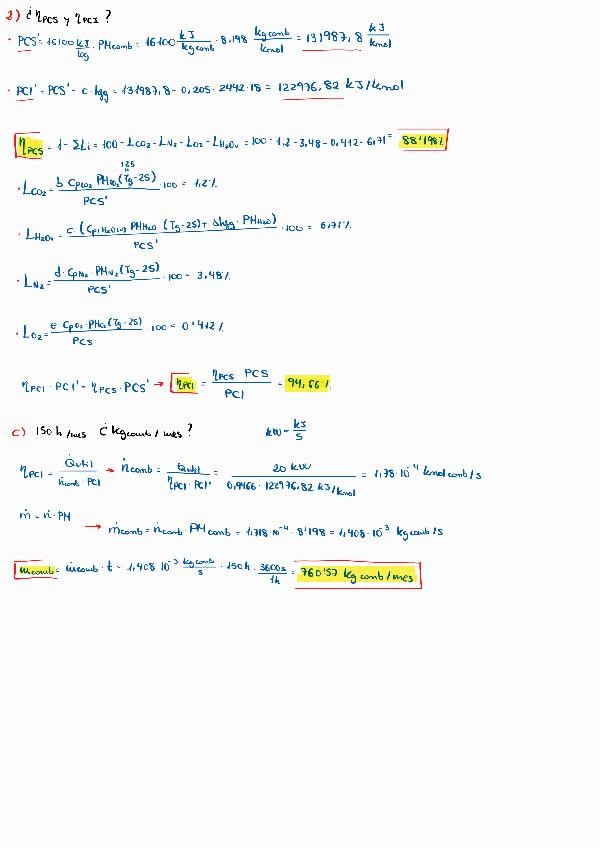 2) ¿ηPCS y ηPCI ?
· PCS' = 16100 kJ/kg · PMcomb = 16100 kJ/kgcomb · 8,198 kgcomb/kmol = 131987,8 kJ/kmol
· PCI' = PCS' - c · hfg = 131987,8 - 0,205 · 2442 · 18 = 122976,82 kJ/kmol
ηPCS = 1 - ΣLi = 100 - LCO2 - LN2 - LO2 - LH2Ov = 100 - 1,2 - 3,48 - 0,412 - 6,71 = 88'198%
125
· LCO2 = b CpCO2 PMCO2 (Tg-25) / PCS' · 100 = 1,2%
· LH2Ov = c · (CpH2O(v) PMH2O (Tg-25) + Δhfg · PMH2O) / PCS' · 100 = 6,71%
· LN2 = d · CpN2 · PMN2 (Tg-25) / PCS' · 100 = 3,48%
· LO2 = e · CpO2 · PMO2 (Tg-25) / PCS · 100 = 0'412%
ηPCI · PCI' = ηPCS · PCS' → ηPCI = ηPCS · PCS / PCI = 94,66%
c) 150 h/mes ¿kgcomb/mes? kW = kJ/s
ηPCI = Q̇util / ṅcomb · PCI → ṅcomb = Q̇util / ηPCI · PCI' = 20 kW / 0,9466 · 122976,82 kJ/kmol = 1,78 · 10⁻⁴ kmolcomb/s
ṁ = ṅ · PM
→ ṁcomb = ṅcomb · PMcomb = 1,718 · 10⁻⁴ · 8'198 = 1,408 · 10⁻³ kgcomb/s
mcomb = ṁcomb · t = 1,408 · 10⁻³ kgcomb/s · 150h · 3600s/1h = 760'57 kgcomb/mes